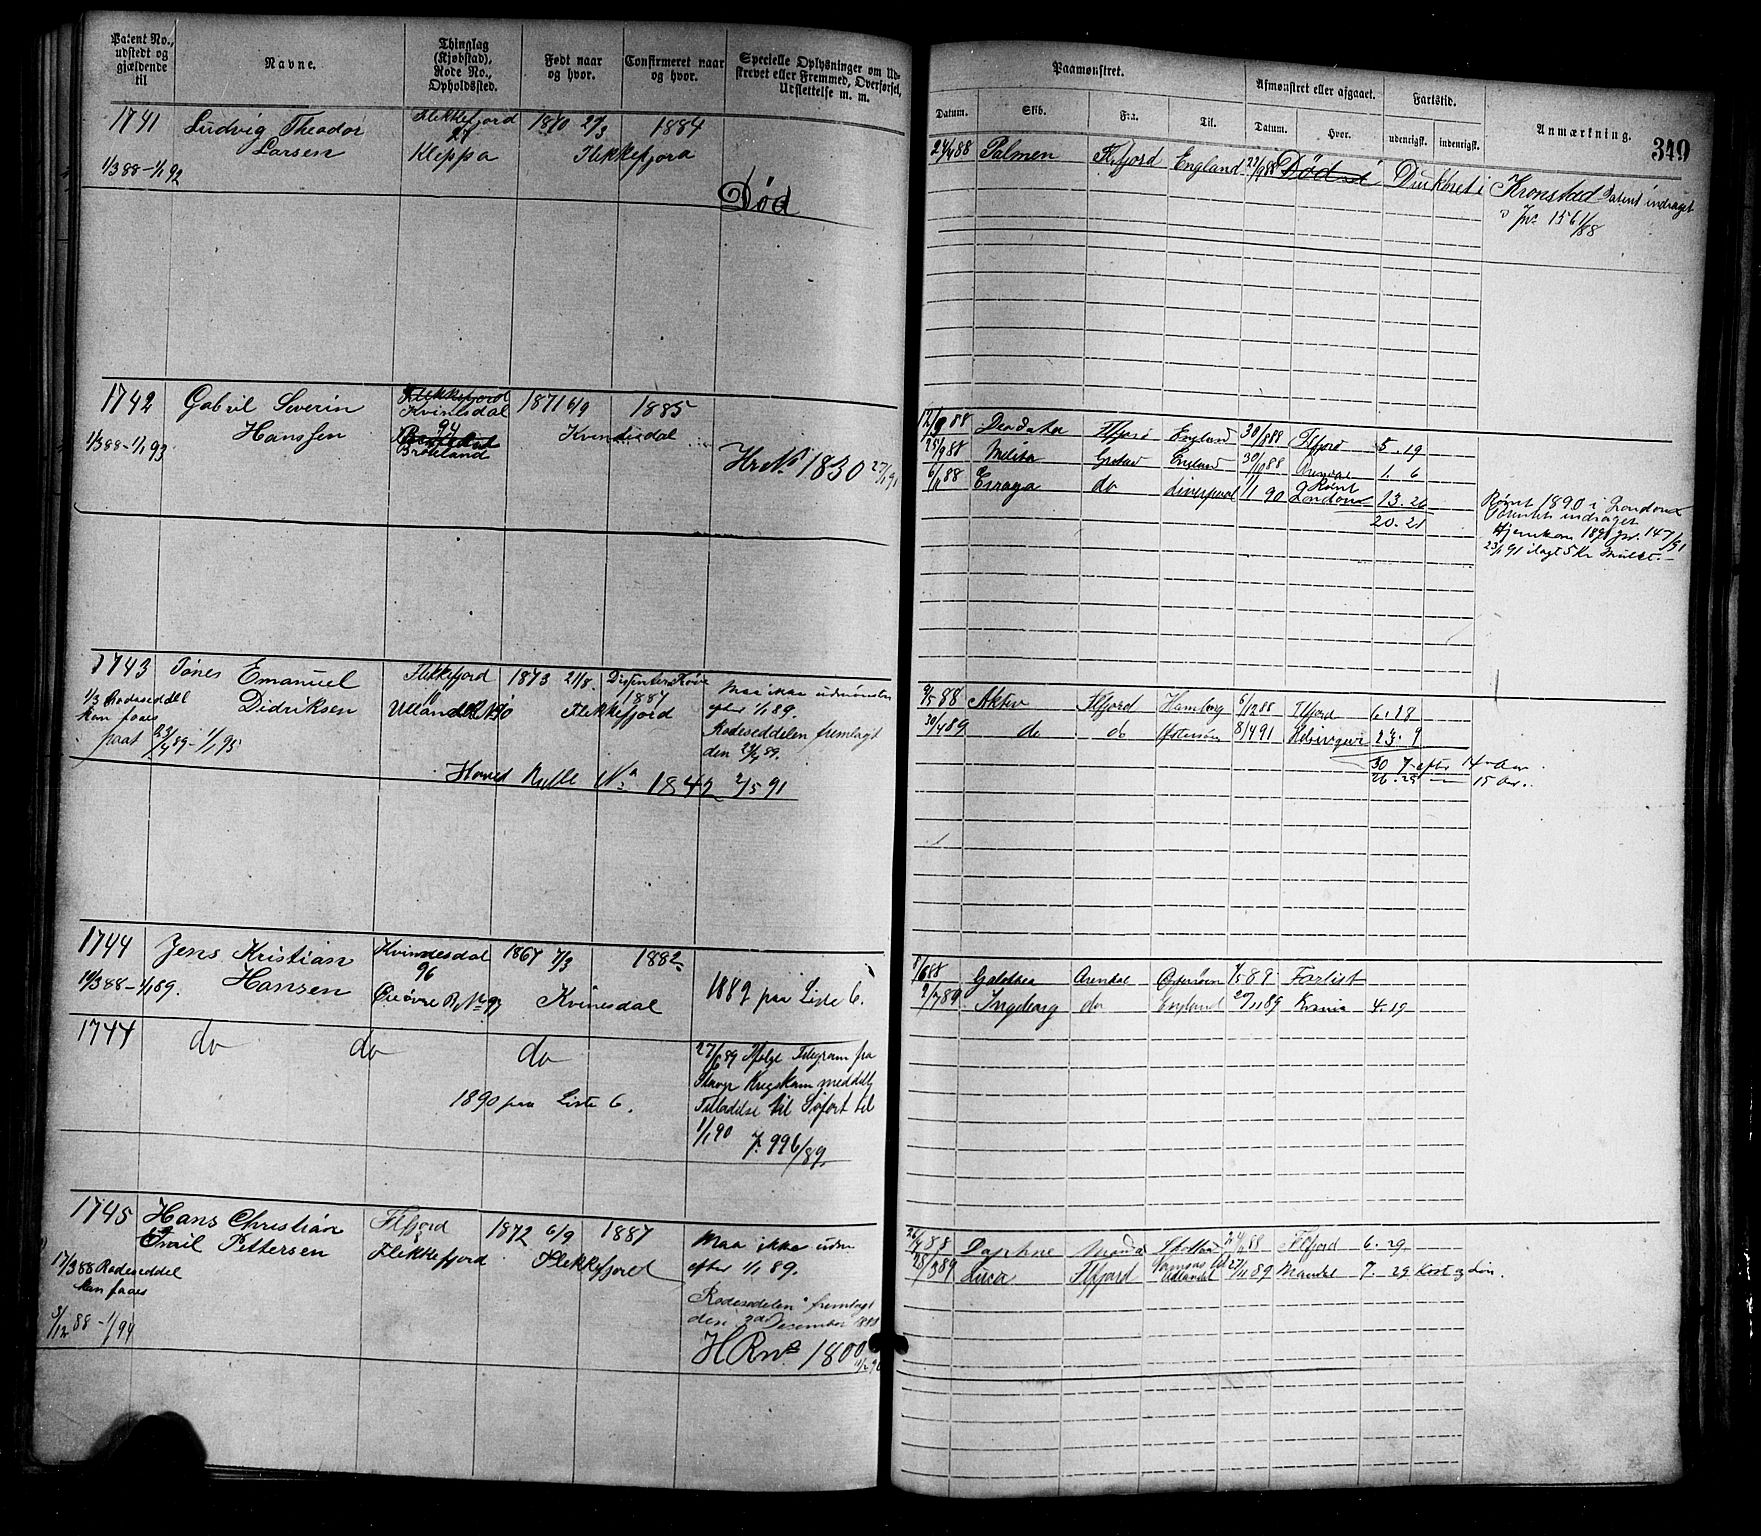 Patent No., udstedt og gjældende til
Navne.
Thinglag (Kjøbstad), Rode No., Opholdssted.
Født naar og hvor.
Confirmeret naar og hvor.
Specielle Oplysninger om Udskrevet eller Fremmed, Overførsel, Udslettelse m. m.
Paamønstret.
Datum.
Skib.
Fra.
Til.
Afmønstret eller afgaaet.
Datum.
Hvor.
Fartstid.
udenrigsk.
indenrigsk.
Anmærkning.
349
1741
Ludvig Theodor
Larsen
Flekkefjord
27
Kleppa
1870 27/3
1884
Flekkefjord
1/3 88 - 1/1 92
Død
24/4 88 Palmen Flfjord England 22/9 88 Død Druknet i Kronstad Patent indraget
Jn 1561/88
1742
Gabril Severin
Hanssen
Flekkefjord
Kvinesdal
94
Brøkland
1871 6/9
1885
Kvindesdal
1/3 88 - 1/1 93
Hr No 1830 27/1 91
12/3 88 Deodata Flfjord England 30/8 88 Flfjord 5. 19
25/9 88 Melita Grstad England 30/10 88 Arendal 1. 6
6/11 88 do Liverpool 1/1 90 Rømt London 13. 26
20. 21
Rømt 1890 i London
Patentet indraget
Hjemkom 1891 jr. 147/91
23/1 91 ilagt 5 Kr Mulct.
1743
Tønes Emanuel
Didriksen
Flekkefjord
11
1873 21/8.
1887
Flekkefjord
1/3 Rodeseddel
kan faaes
paat 23/4 89 - 1/1 95
Maa ikke udmønstres
efter 1/1 89.
Rodeseddelen fremlagt
den 23/4 89.
Hoved Rulle No 1842 2/5 91
9/5 88 Aktiv Flfjord Hamborg 6/12 88 Flfjord 6. 28
30/4 89 do do Østersøen 8/4 91 23. 9
30 7 - efter 14 - Aar
26. 25 - 15 Aar.
1744
Jens Kristian
Hansen
Kvindesdal
96
1867 7/3
1882
Kvinesdal
10/3 88 - 1/1 89.
1889 paa Liste 6.
1/6 88 Galathea Arendal Østersøen 7/5 89 Forlist
2/7 89 Ingeborg do England 27/11 89 Krania 4. 19
1744
do do do
1890 paa Liste 6.
27/6 89 Ifølge Telegram fra
Stavgr Krigskom meddelt
Tilladelse til Søfart til
1/1 90 J. 996/89.
1745
Hans Christian
Emil Pettersen
Flfjord
Flekkefjord
1872 6/9
1887
Flekkefjord
17/3 88 Rodeseddel
kan faaes
3/12 88 - 1/1 94
Maa ikke udm
efter 1/1 89.
Rodesedelen fremlagt
den 3die December 1888
H R no 1800
26/4 88 Daphne Mandal Skotland 24/11 88 Flfjord 6. 29
28/3 89 Luca Flfjord Udlandet 27/11 89 Mandal 7. 29 Kost og Løn.